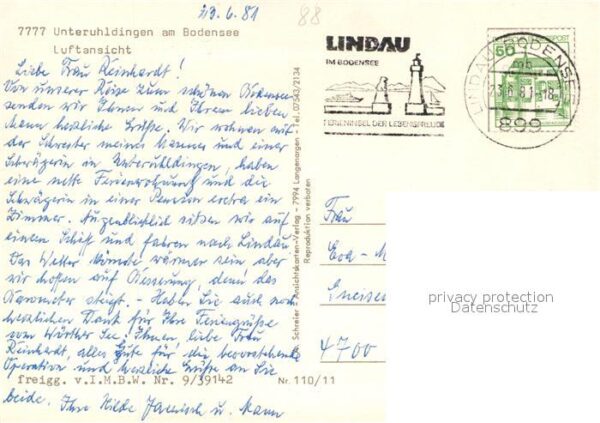 23.6.81
88
7777 Unteruhldingen am Bodensee
Luftansicht
Liebe Frau Reinhardt!
Von unserer Reise zum schönen Bodensee
senden wir Ihnen und Ihrem lieben
Mann herzliche Grüße. Wir wohnen mit
der Schwester meines Mannes und einer
Schwägerin in Unteruhldingen, haben
eine nette Ferienwohnung und die
Schwägerin in einer Pension extra ein
Zimmer. Augenblicklich sitzen wir auf
einem Schiff und fahren nach Lindau
Das Wetter könnte wärmer sein aber
wir hoffen auf Besserung, denn das
Barometer steigt. - Haben Sie auch noch
herzlichen Dank für Ihre Feriengrüße
vom Wörther See. Ihnen, liebe Frau
Reinhardt, alles Gute für die bevorstehende
Operation und herzliche Grüße an Sie
freigg. v.I.M.B.W. Nr. 9/39142
Nr. 110/11
beide. Ihre Hilde u. Mann
Schreier - Ansichtskarten-Verlag - 7994 Langenargen - Tel. 07543/2134
Reproduktion verboten
LINDAU
IM BODENSEE
FERIENINSEL DER LEBENSFREUDE
LINDAU, BODENSEE
23.6.81-18
899
Frau
Eva - M
4700
privacy protection
Datenschutz